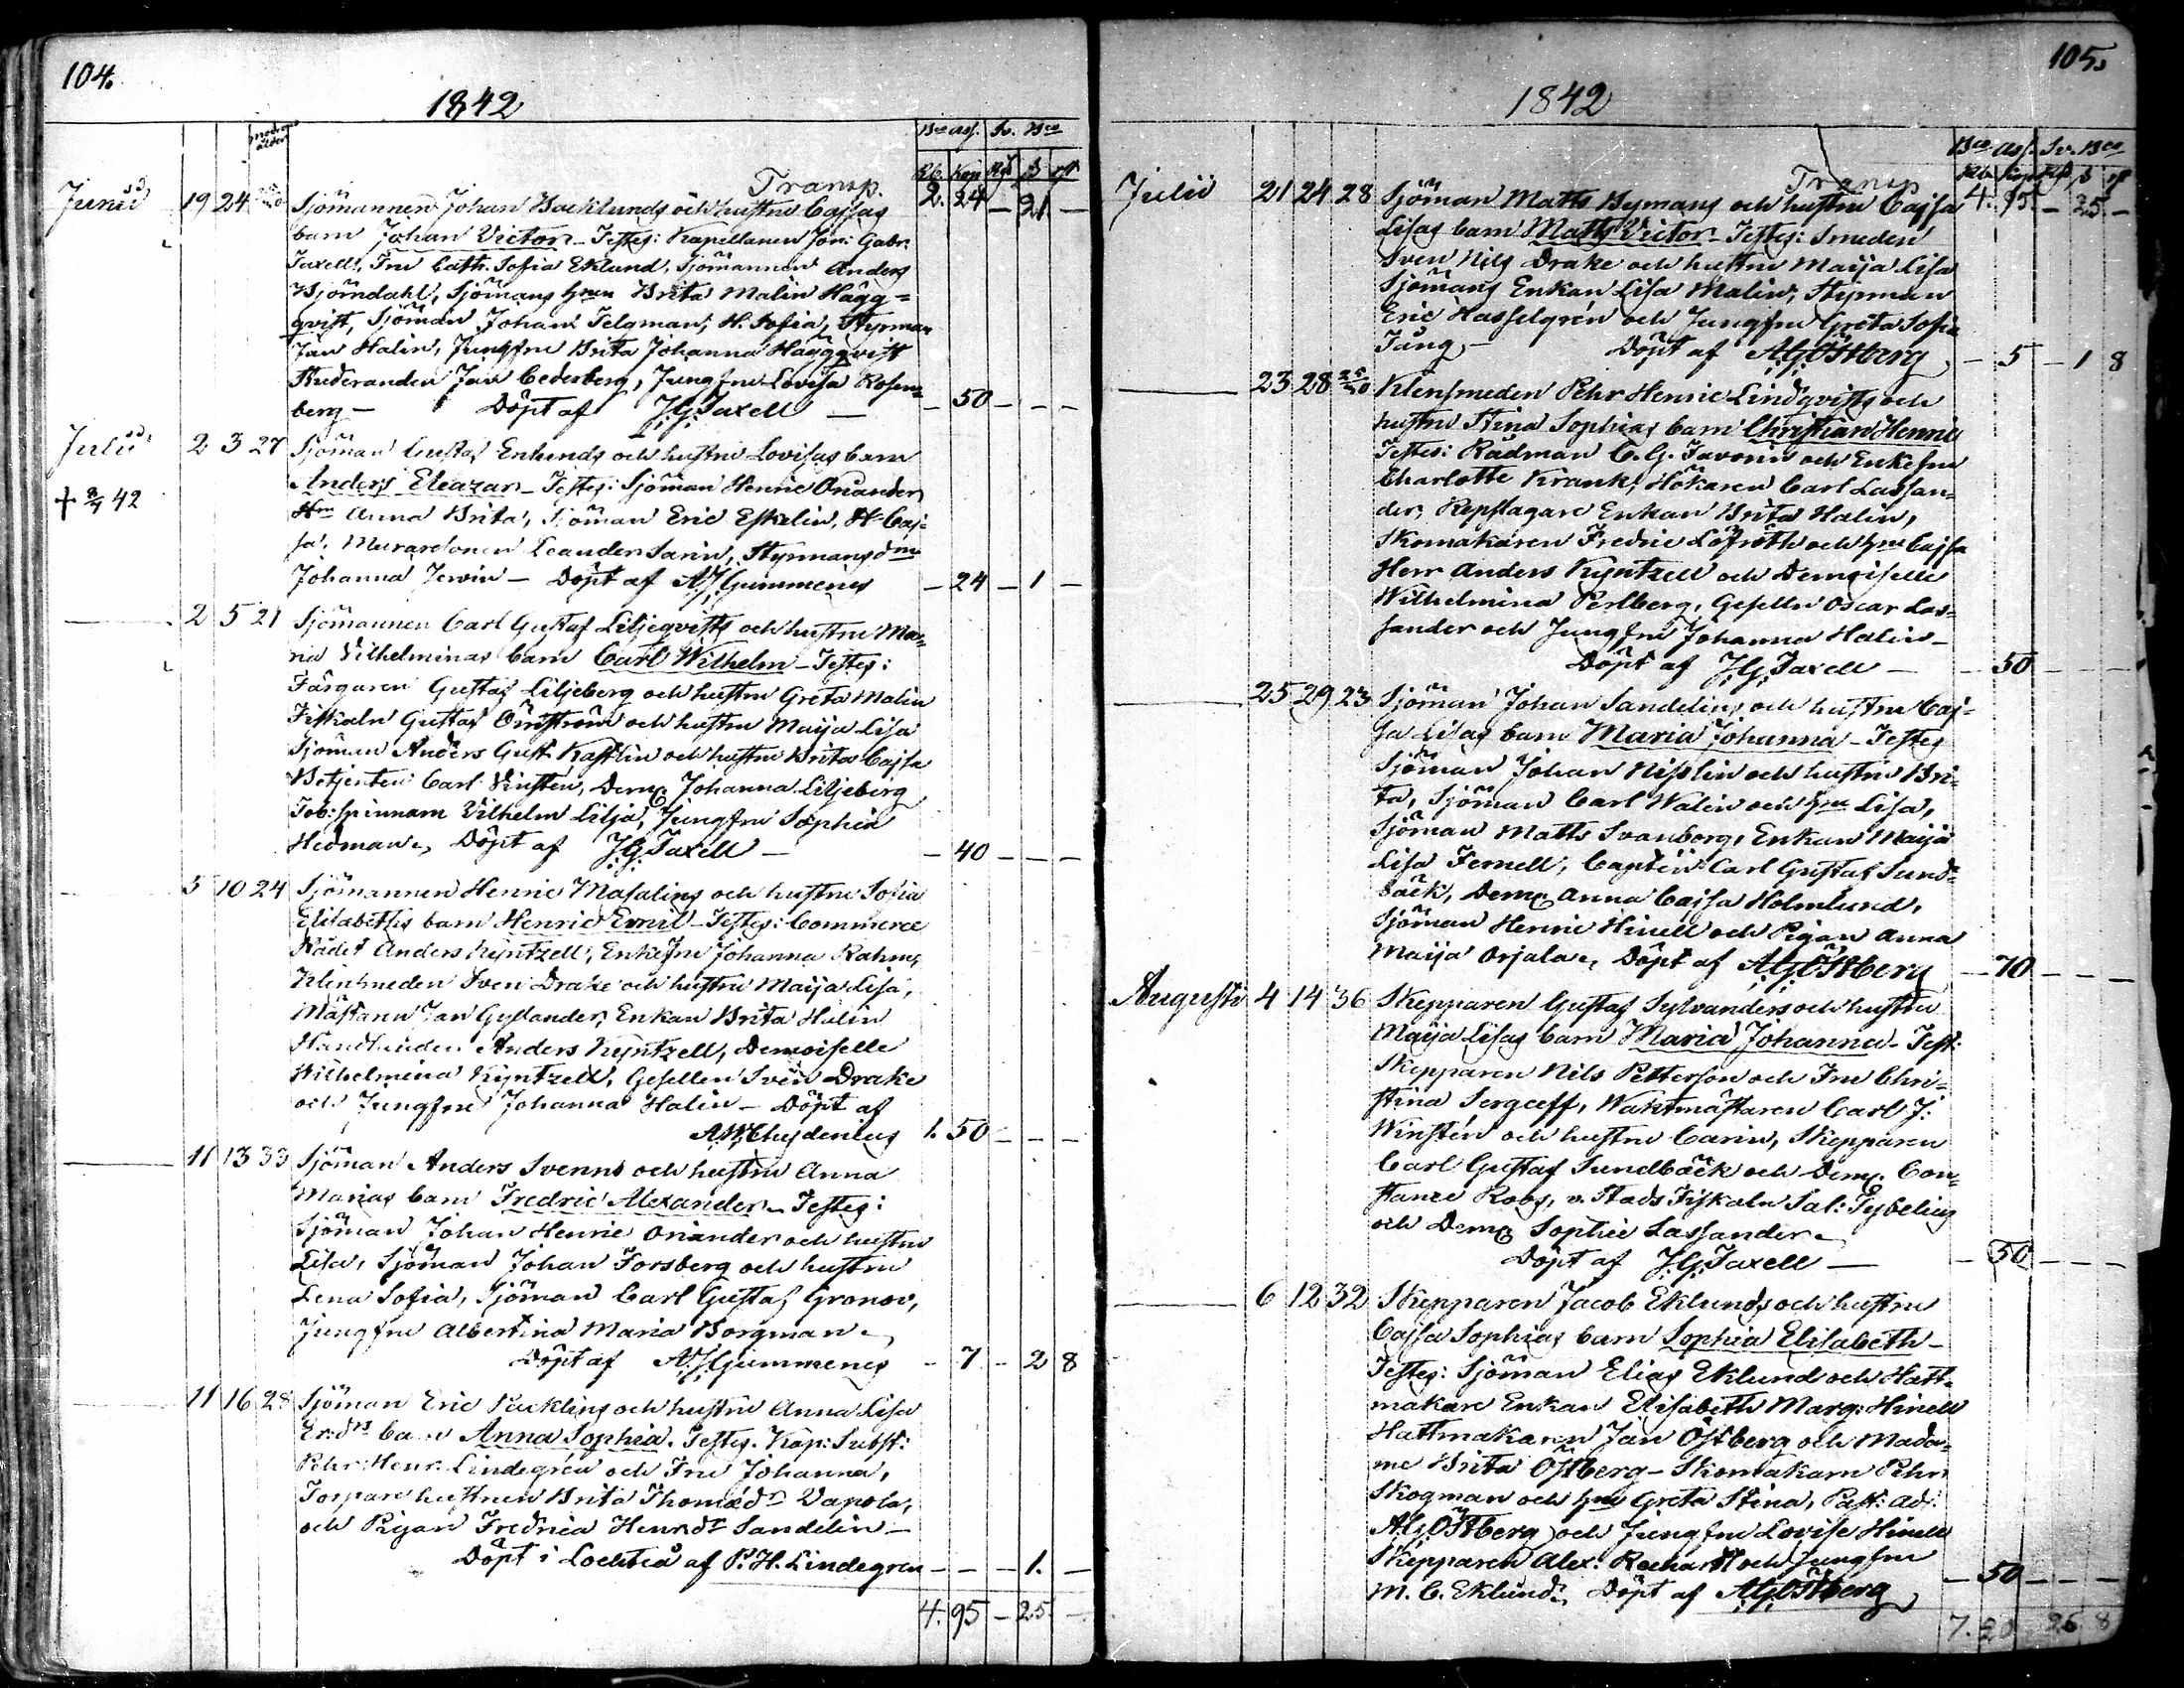 104.
1842
moders ålder
Bco ass. Sv. Bco
Rb. Kop Rdr ß rst
Transp. 2. 24 — 21 —
Junii 19 24 Sjömannen Johan Backlunds och hustru Cajsas
barn Johan Victor — Testes: Kapellanen Jon: Gabr.
Taxell, Fru Cath. Sofia Eklund, Sjömannen Anders
Björndahl, Sjömans hrun Brita Malin Hägg=
qvist, Sjöman Johan Telgman, H. Sofia, Styrman
Jan Halin, Jungfru Brita Johanna Häggqvist
Studeranden Jan Cederberg, Jungfru Lovisa Rosen=
berg — Döpt af J.G. Taxell — — 50 — — —
Julii 2 3 27 Sjöman Gustaf Enlunds och hustru Lovisas barn
+ 8/7 42 Anders Eleazar — Testes: Sjöman Henric Onander
Hru Anna Brita, Sjöman Eric Eskelin, H. Caj=
sa, Murare Leander Sarin, Styrmans
Johanna Jervin — Döpt af A.J. Gummenius — 24 — 1 —
2 5 21 Sjömannen Carl Gustaf Liljeqvists och hustru Ma=
ria Vilhelminas barn Carl Wilhelm — Testes:
Färgaren Gustaf Liljeberg och hustru Greta Malin
Fiskaln Gustaf Önström och hustru Maija Lisa
Sjöman Anders Gust. Kastlin och hustru Brita Cajsa
Betjenten Carl Vinsten, Dem. Johanna Liljeberg
Tob: spinnarn Vilhelm Lilja, Jungfru Sophia
Hedman. Döpt af J.G. Taxell — — 40 — — —
5 10 24 Sjömannen Henric Masalins och hustru Sofia
Elisabeths barn Henric Emil — Testes: Commerce
Rådet Anders Kyntzell, Enkefru Johanna Rahm,
Klensmeden Sven Drake och hustru Maija Lisa,
Mästarn Jan Gyllander, Enkan Brita Halin
Handlanden Anders Kyntzell, Demoiselle
Wilhelmina Kyntzell, Gesellen Sven Drake
och Jungfru Johanna Halin — Döpt af
A.W. Chydenius 1. 50 — — —
11 13 33 Sjöman Anders Svenns och hustru Anna
Marias barn Fredric Alexander — Testes:
Sjöman Johan Henric Onander och hustru
Lisa, Sjöman Johan Forsberg och hustru
Lena Sofia, Sjöman Carl Gustaf Gronow,
Jungfru Albertina Maria Borgman.
Döpt af A.J. Gummenius — 7 — 2 8
11 16 28 Sjöman Eric Päcklins och hustru Anna Lisa
Er:drs barn Anna Sophia. Testes. Kap: Subst:
Pehr Henr. Lindegren och Fru Johanna,
Torpare hustrun Brita Thomædr Vapola,
och Pigan Fredrica Henrdr Sandelin —
Döpt i Lochteå af P.H. Lindegren — — — 1. —
4. 95 — 25. —
105.
1842
Bco ass. Sv. Bco
Rb. Kop Rdr ß rst
Transp 4. 95. — 25. —
Julii 21 24 28 Sjöman Matts Bymans och hustru Cajsa
Lisas barn Matts Victor — Testes: Smeden
Sven Nils Drake och hustru Maija Lisa
Sjömans Enkan Lisa Malin, Styrman
Eric Hasselgrén och Jungfru Greta Sofia
Jung. — Döpt af A.G. Östberg — 5 — 1 8
23 28 Klensmeden Pehr Henric Lindqvists och
hustru Stina Sophias barn Christian Henric
Testes: Rådman C.G. Favorin och Enkefru
Charlotte Krank, Hökaren Carl Lassan=
der, Repslagare Enkan Brita Halin,
Skomakaren Fredric Löfroth och hru Cajsa
Herr Anders Kyntzell och Demoiselle
Wilhelmina Perlberg, Geselln Oscar Las=
sander och Jungfru Johanna Halin —
Döpt af J.G. Taxell — — 50 — — —
25 29 23 Sjöman Johan Sandelins och hustru Caj=
sa Lisas barn Maria Johanna — Testes
Sjöman Johan Nisslin och hustru Bri=
ta, Sjöman Carl Walin och hru Lisa,
Sjöman Matts Svanborg, Enkan Maija
Lisa Fernell, Captein Carl Gustaf Sund=
bäck, Dem. Anna Cajsa Holmlund,
Sjöman Henric Hinell och Pigan Anna
Maija Orjala. Döpt af A.G. Östberg — 70 — — —
Augusti 4 14 36 Skepparen Gustaf Sylvanders och hustru
Maija Lisas barn Maria Johanna — Test:
Skepparen Nils Petterson och Fru Chri=
stina Sergeeff, Waktmästaren Carl J:
Winstén och hustru Carin, Skepparen
Carl Gustaf Sundbäck och Dem. Con=
stance Roos, v. Stads Fiskaln Sal: Tybelius
och Dem. Sophie Lassander —
Döpt af J.G. Taxell — — 50 — — —
6 12 32 Skepparen Jacob Eklunds och hustru
Cajsa Sophias barn Sophia Elisabeth —
Testes: Sjöman Elias Eklund och Hatt=
makare Enkan Elisabeth Marg: Hinell
Hattmakaren Jan Östberg och Mada=
me Brita Östberg — Skomakarn Pehr
Skogman och hru Greta Stina, Past: adj.
A.G. Östberg och Jungfru Lovisa Hinell
Skepparen Alex: Rechardt och Jungfru
M. C. Eklund. Döpt af A.G. Östberg — 50 — — —
7. 20 26 8